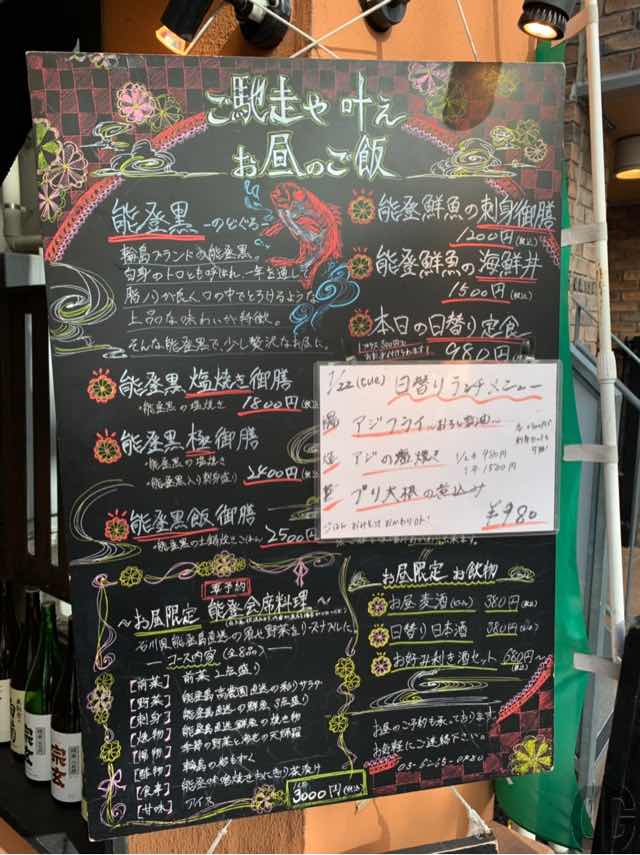 ご馳走や 叶え
お昼のご飯
能登黒 -のどぐろ
輪島ブランドの能登黒。
白身のトロとも呼ばれ、一年を通して
脂ノリが良く、口の中でとろけるような
上品な味わいが特徴。
そんな能登黒で、少し贅沢なお昼に。
能登黒 塩焼き御膳
・能登黒の塩焼き 1800円(税込)
能登黒 極御膳
・能登黒の塩焼き
・能登黒入り刺身盛り 2400円(税
能登黒飯御膳
・能登黒の土鍋炊きごはん 2500円
能登鮮魚の刺身御膳
1200円(税込)
能登鮮魚の海鮮丼
1500円(税込)
本日の日替り定食
プラス300円で
980円(税込)
1/22(tue) 日替りランチメニュー
揚 アジフライ〜おろし醤油〜
焼 アジの塩焼き 1/2尾 980円
1尾 1500円
煮 ブリ大根の煮込み
¥980
ごはん おみそ汁 おかわりOK!
要予約
〜お昼限定 能登会席料理〜
石川県能登島直送の魚や野菜をリーズナブルに
コース内容(全8品)
【前菜】 前菜 2点盛り
【野菜】 能登島高農園直送の彩りサラダ
【刺身】 能登島直送の鮮魚 3点盛り
【焼物】 能登島直送鮮魚の焼き物
【揚物】 季節の野菜と海老の天婦羅
【酢物】 輪島のもずく
【食事】 能登味噌焼きおにぎり茶漬け
【甘味】 アイス
3000円(税込)
お昼限定 お飲物
お昼麦酒(グラス) 380円(税込)
日替り日本酒 380円(税込)
お好み利き酒セット 680円〜
(税込)
お昼のご予約も承っております。
お気軽にご連絡下さい。